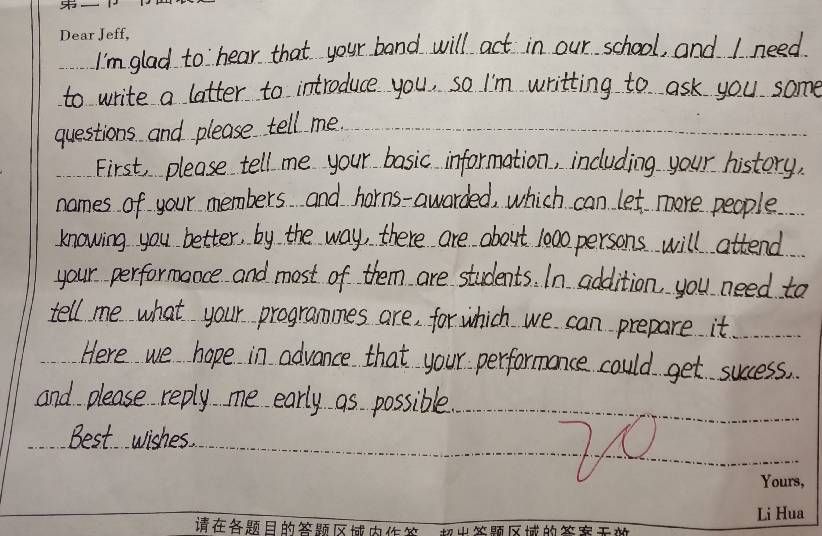 Dear Jeff,
I'm glad to hear that your band will act in our school, and I need
to write a latter to introduce you, so I'm writting to ask you some
questions and please tell me.
First, please tell me your basic information, including your history,
names of your members and horns-awarded, which can let more people
knowing you better, by the way, there are about 1000 persons will attend
your performance and most of them are students. In addition, you need to
tell me what your programmes are, for which we can prepare it.
Here we hope in advance that your performance could get success,
and please reply me early as possible.
Best wishes.
20
Yours,
Li Hua
请在各题目的答题区域内作答，超出答题区域的答案无效